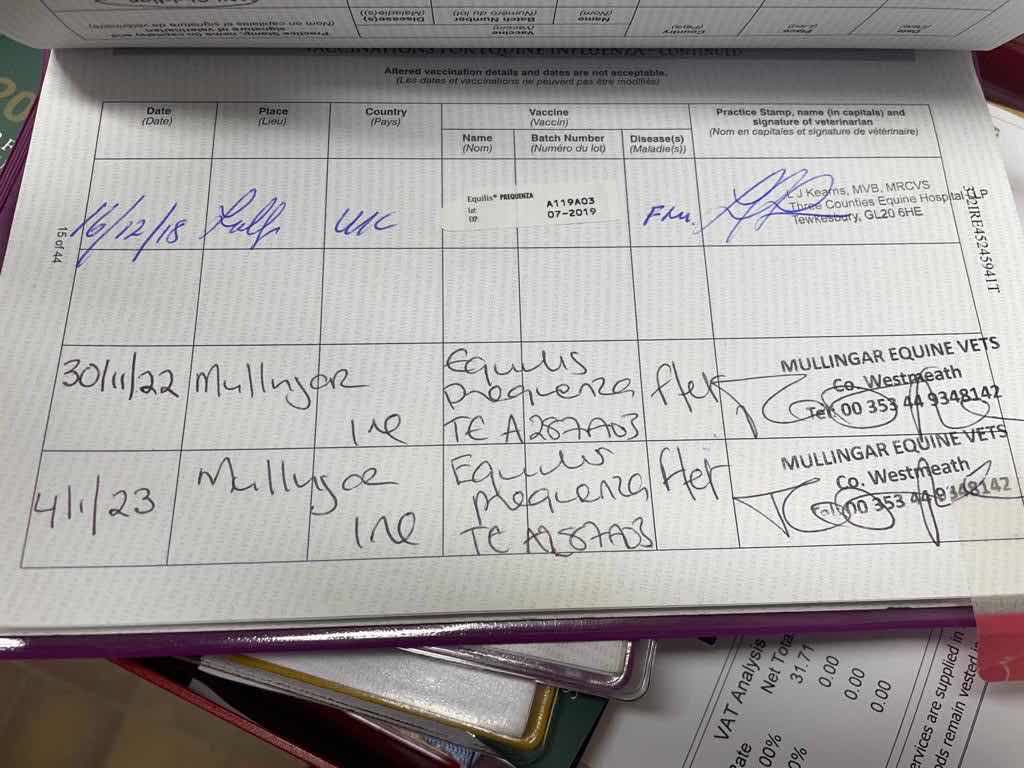 Practice Stamp, name (in capitals) and
signature of veterinarian
(Nom en capitales et signature de vétérinaire)
Disease(s)
(Maladie(s))
Vaccine
(Vaccin)
Batch Number
(Numéro du lot)
Name
(Nom)
Country
(Pays)
Place
(Lieu)
Date
(Date)
VACCINATIONS FOR EQUINE INFLUENZA - CONTINUED
Altered vaccination details and dates are not acceptable.
(Les dates et vaccinations ne peuvent pas être modifiés)
Date
(Date)
Place
(Lieu)
Country
(Pays)
Vaccine
(Vaccin)
Name
(Nom)
Batch Number
(Numéro du lot)
Disease(s)
(Maladie(s))
Practice Stamp, name (in capitals) and
signature of veterinarian
(Nom en capitales et signature de vétérinaire)
16/12/18
UK
Equilis® PREQUENZA
lot:
EXP:
A119A03
07-2019
Flu.
L J Kearns, MVB, MRCVS
Three Counties Equine Hospital LLP
Tewkesbury, GL20 6HE
15 of 44
30/11/22
Mullingar
Ire
Equilis
prequenza
TE A287A03
MULLINGAR EQUINE VETS
Co. Westmeath
Tel: 00 353 44 9348142
4/1/23
Mullingar
Ire
Equilis
prequenza
TE A287A03
MULLINGAR EQUINE VETS
Co. Westmeath
Tel: 00 353 44 9348142
VAT Analysis
Net Tota
31.71
0.00
0.00
0.00
Rate
00%
0%
ervices are supplied in
ds remain vested in
20